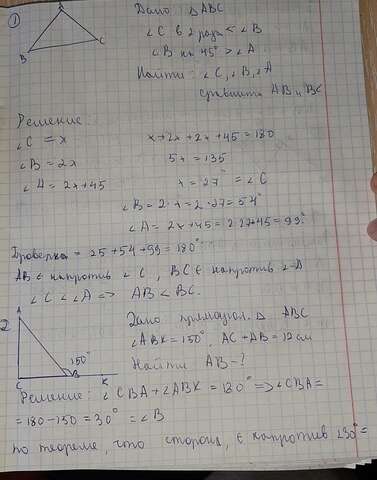 1
A
B
C
Дано △ABC
∠C в 2 раза < ∠B
∠B на 45° > ∠A
Найти: ∠C, ∠B, ∠A
сравнить AB и BC
Решение
∠C = x
x+2x+2x+45=180
∠B = 2x
5x = 135
∠A = 2x+45
x = 27° = ∠C
∠B = 2·x = 2·27 = 54°
∠A = 2x+45 = 2·27+45 = 99°
Проверка = 25+54+99=180°
AB ∈ напротив ∠C, BC ∈ напротив ∠A
∠C < ∠A => AB < BC.
2
A
150°
C
B
K
Дано прямоугол. △ ABC
∠ABK = 150°, AC + AB = 12 см
Найти AB - ?
Решение: ∠CBA + ∠ABK = 180° => ∠CBA =
= 180 - 150 = 30° = ∠B
по теореме, что сторона, ∈ напротив ∠30° =